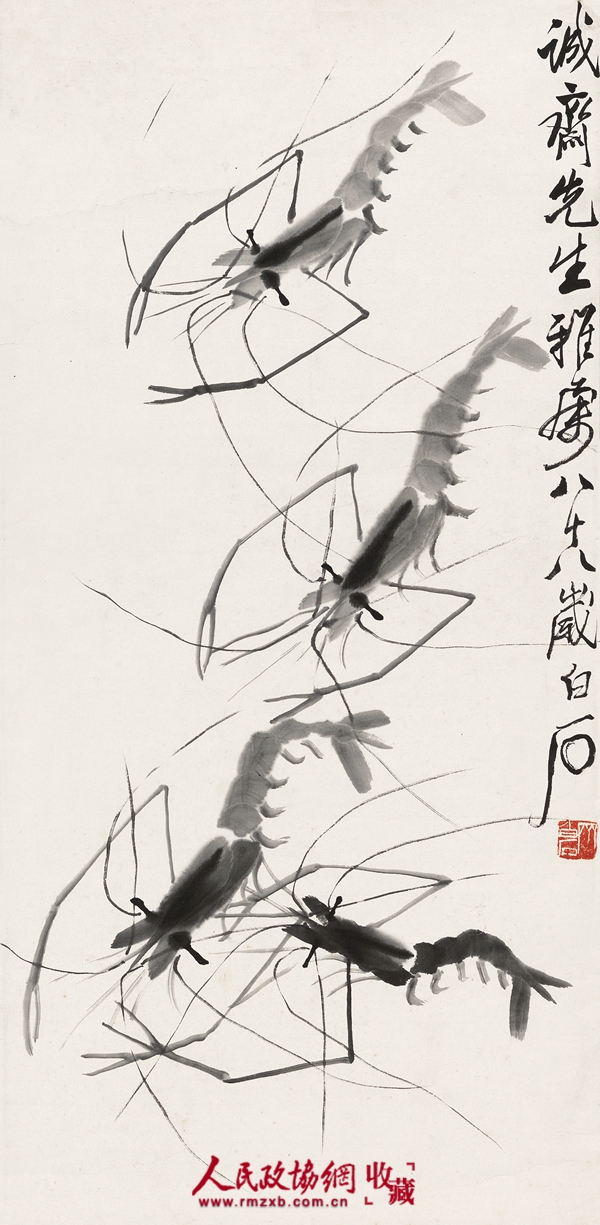 誠齋先生雅屬八十八歲白石
人民政協網「收藏」
www.rmzxb.com.cn